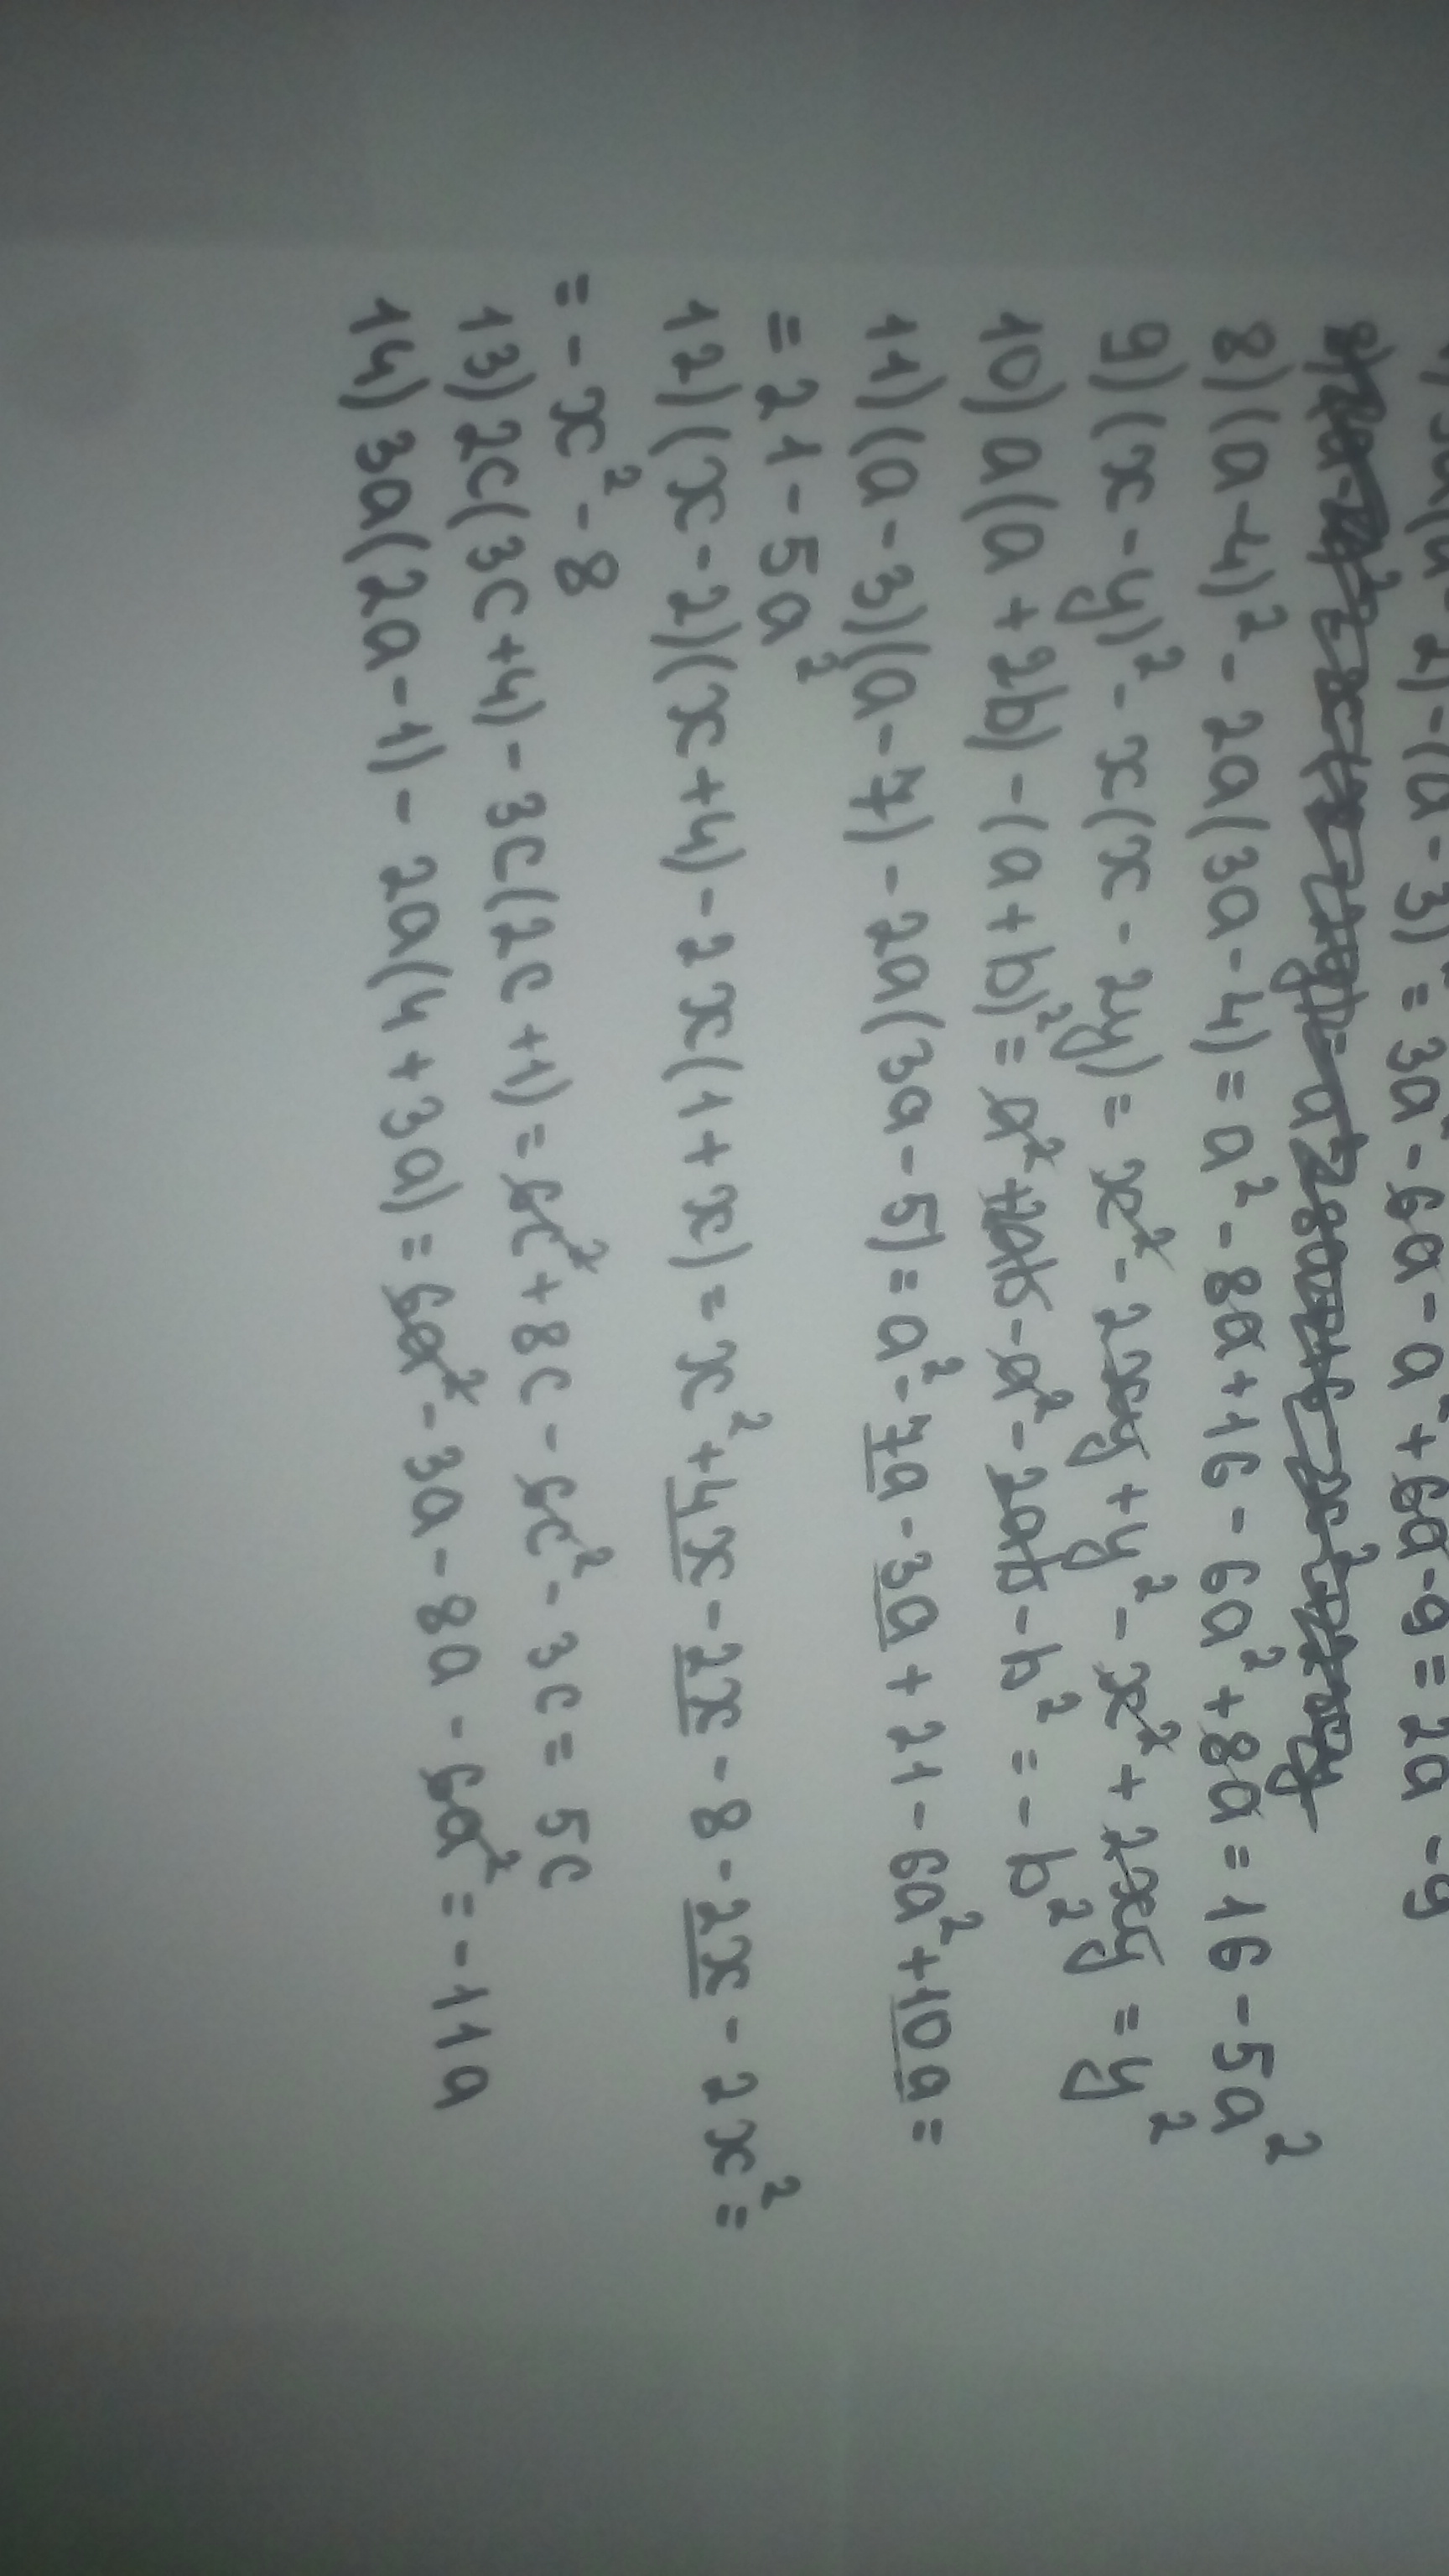 7) 3a(a-2)-(a-3)² = 3a²-6a-a²+6a-9 = 2a-9
8) (a-4)²-2a(3a-4) = a²-8a+16-6a²+8a = 16-5a²
9) (x-y)²-x(x-2y) = x²-2xy+y²-x²+2xy = y²
10) a(a+2b)-(a+b)² = a²+2ab-a²-2ab-b² = -b²
11) (a-3)(a-7)-2a(3a-5) = a²-7a-3a+21-6a²+10a =
= 21-5a²
12) (x-2)(x+4)-2x(1+x) = x²+4x-2x-8-2x-2x² =
= -x²-8
13) 2c(3c+4)-3c(2c+1) = 6c²+8c-6c²-3c = 5c
14) 3a(2a-1)-2a(4+3a) = 6a²-3a-8a-6a² = -11a